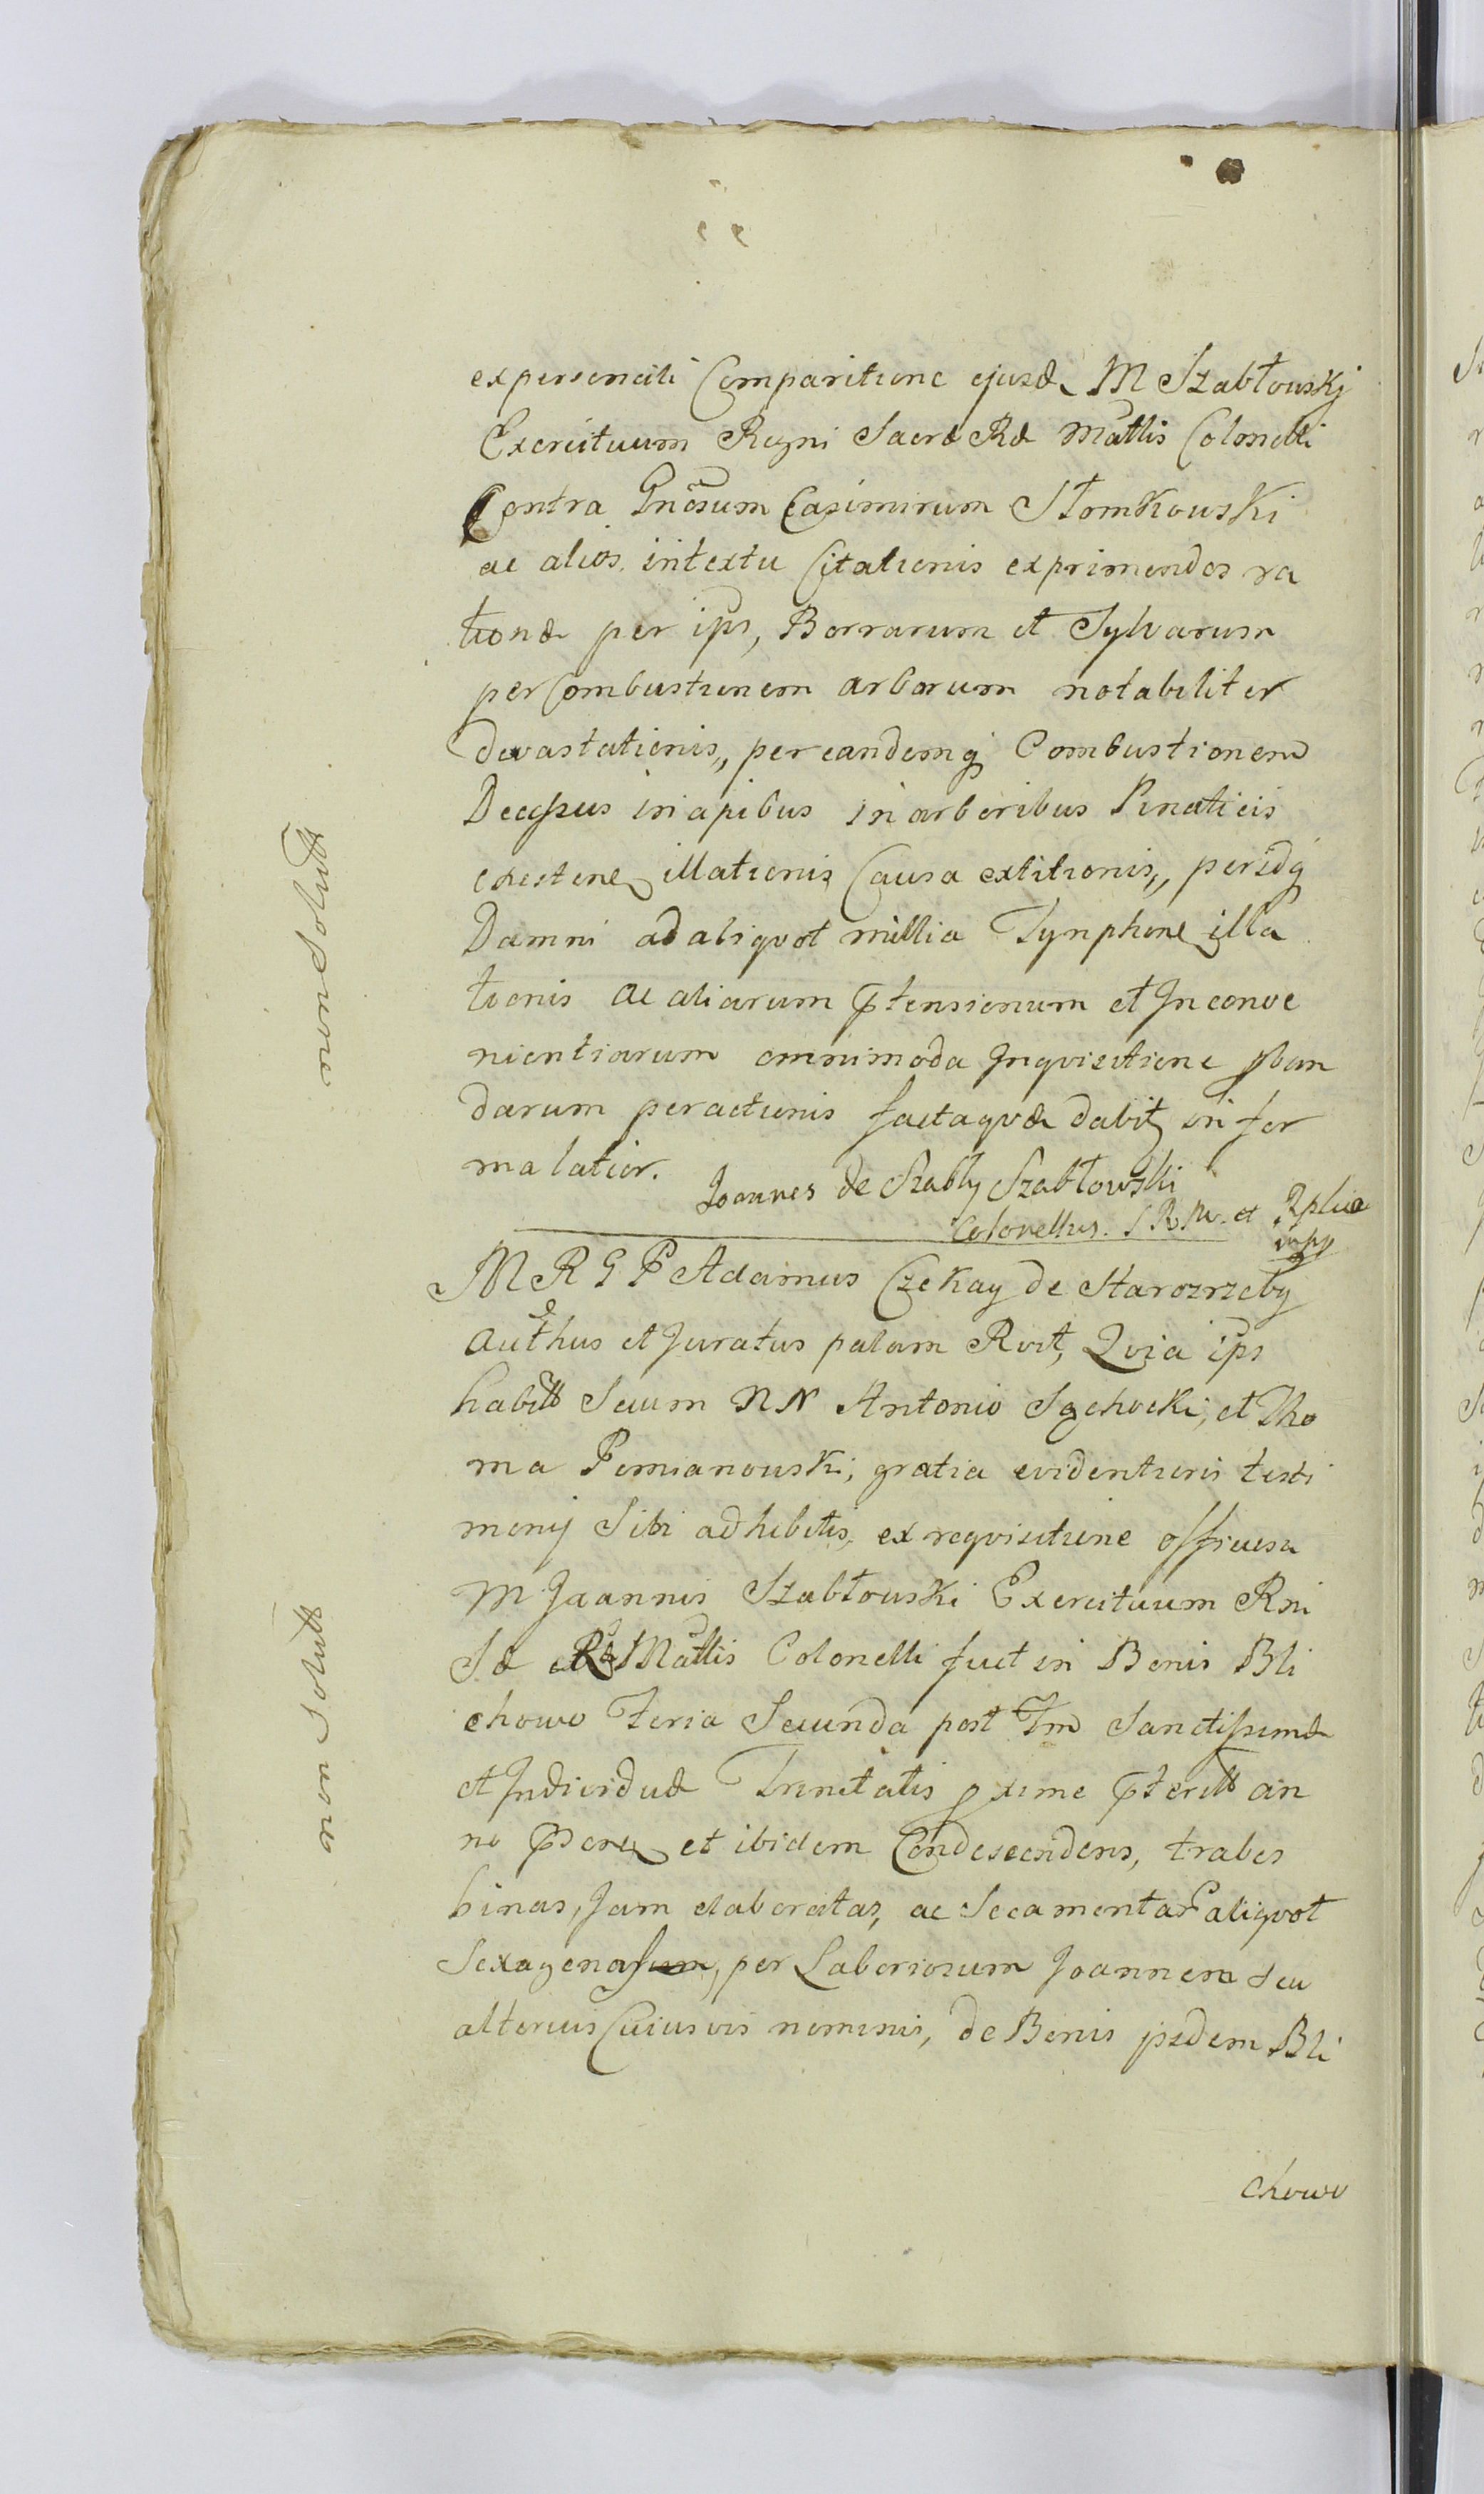 ex personali Comparitione ejusd M Szabłouskj
Exercituum Regni Sacræ Ræ Mattis Colonelli
Contra Gnosum Casimirum Słomkouski
ac alios intextu Citationis exprimendos ra
tione per ips, Borrarum et Sylvarum
per Combustionem arborum notabiliter
devastationis,, per eandemq Combustionem
Decessus in apibus in arboribus Pinaticis
existen illationis Causa extitionis,, per idq
Damni ad aliqvot millia Tynphone illa
tionis ac aliarum ptensionum et Inconve
nientiarum omnimoda Inqvisitione pban
darum peractionis factaqvæ dabit in for
ma latior.
Joannes de Szably Szabłowski
Colonellus. S R M. et Rplicæ
mpp
M R G P Adamus Czekay de Starozrzeby
authus et Juratus palam Rvit, Qvia ips
habitt Secum NN Antonio Sgchocki, et Tho
ma Pomianouski, gratia evidentioris testi
monij Sibi adhibitis, ex reqvisitione officiosa
M Joannis Szabłouski Exercituum Rni
Sæ Ræ Mattis Colonelli fuit in Bonis Bli
chowo Feria Secunda post Fm Sanctissimæ
et Individuæ Trinitatis pxime pteritt an
no pnti et ibidem Condescendens, trabes
binas, Jam elaboratas, ac Secamenta aliqvot
Sexagenas, per Laboriosum Joannem seu
alterius Cuiusvis nominis, de Bonis psdem Bli
chowo
non Solutt
non Solutt